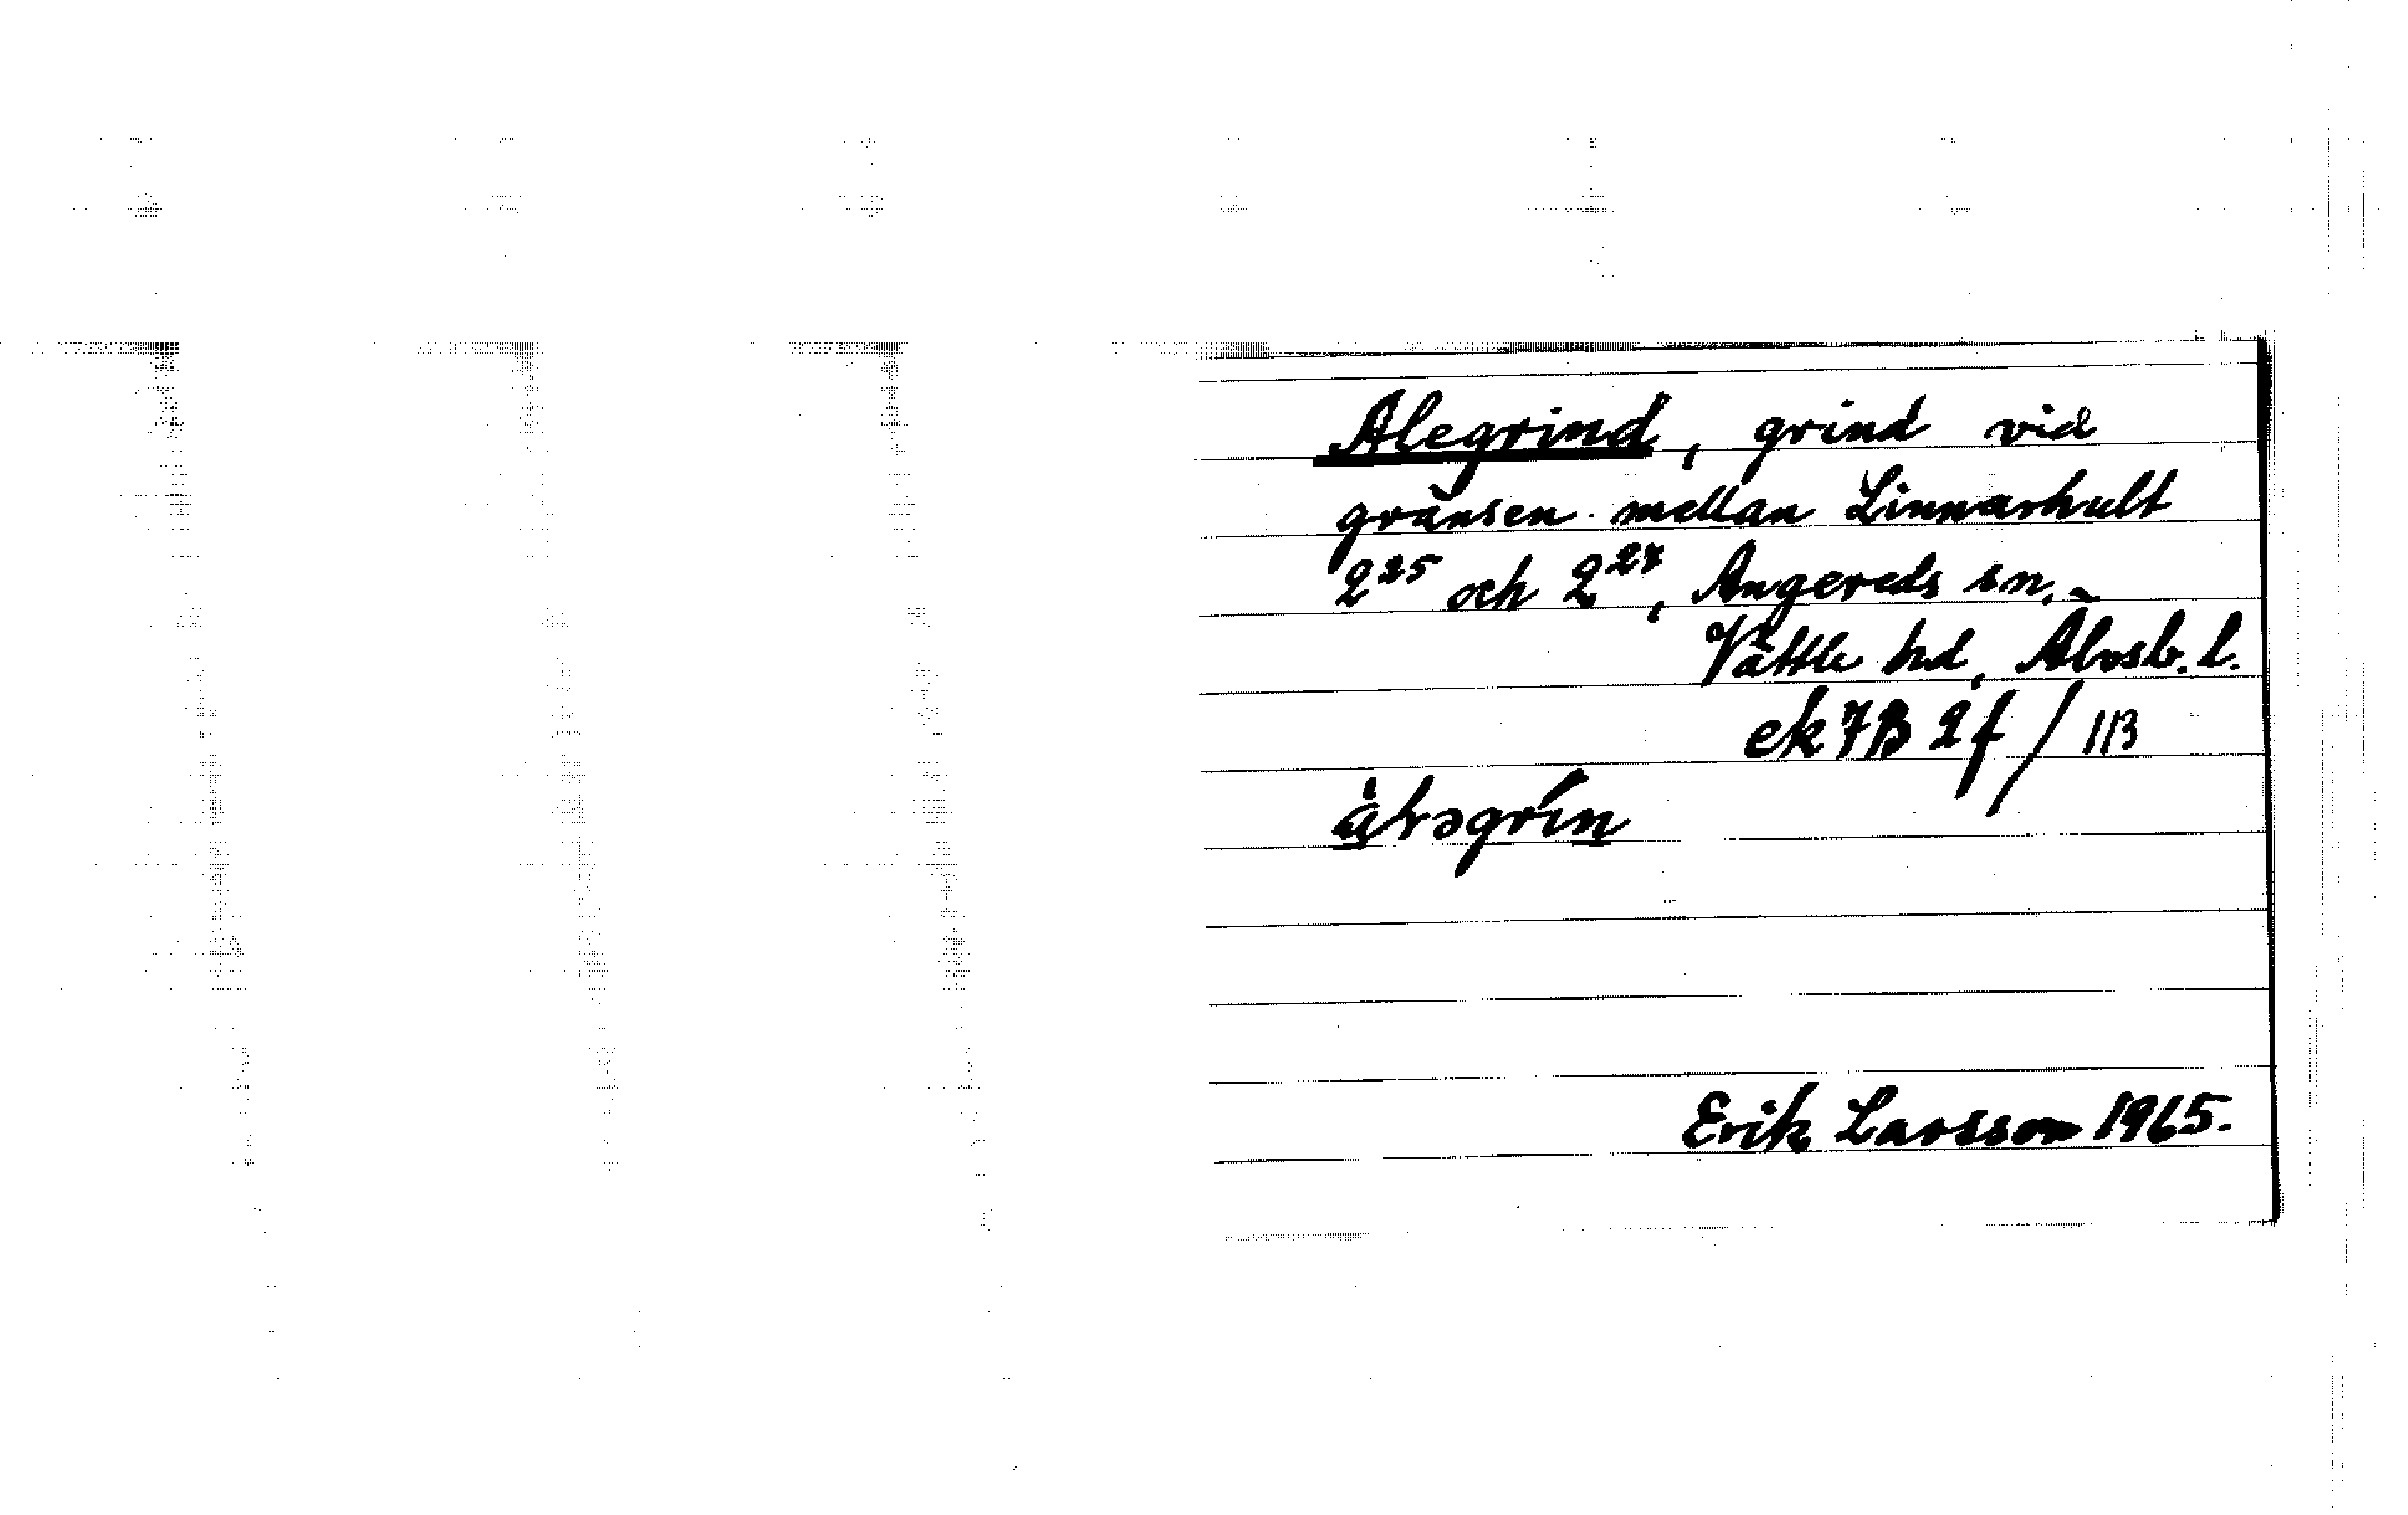 Alegrind, grind vid
gränsen mellan Linnarhult
2²⁵ och 2²⁷, Angereds sn.
Vättle hd, Älvsb. l.
ek 7B 2f / 113
Erik Larsson 1965.